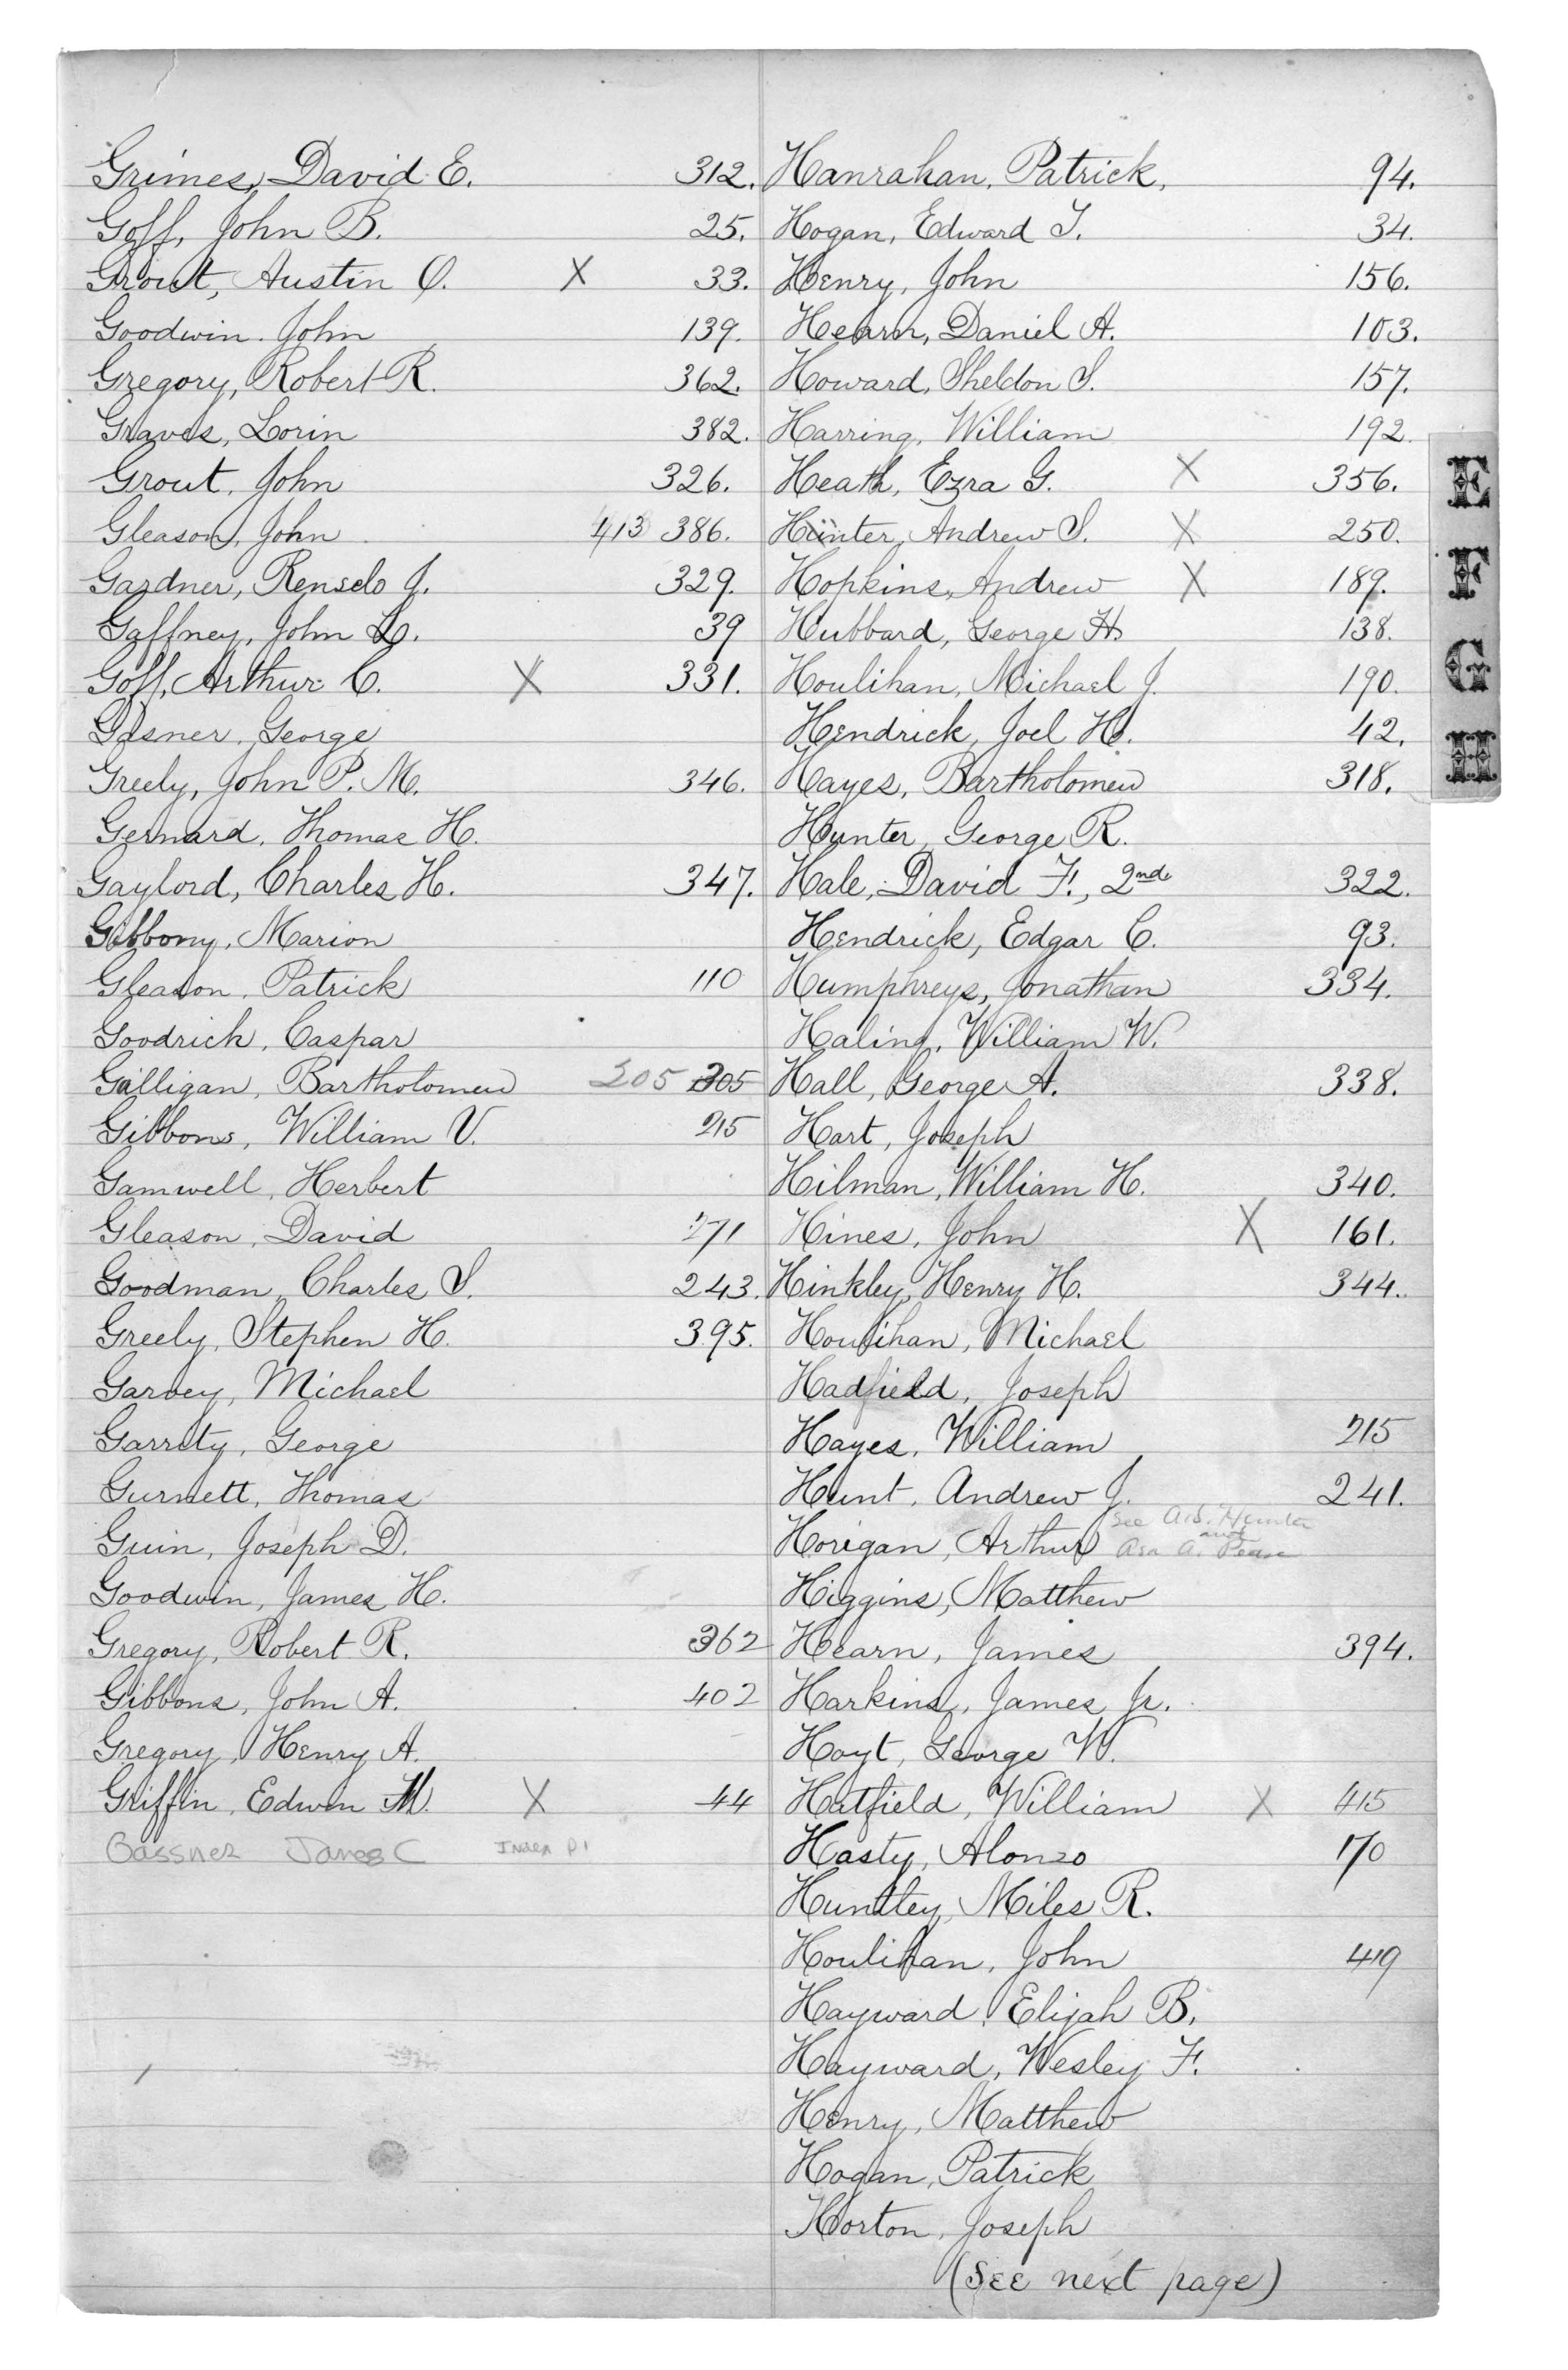 Grimes, David E. 312.
Goff, John B. 25.
Grout, Austin O. X 33.
Goodwin. John 139.
Gregory, Robert R. 362.
Graves, Lorin 382.
Grout, John 326.
Gleason, John 413 386.
Gardner, Renselo J. 329.
Gaffney, John L. 39
Goff, Arthur C. X 331.
Gasner, George
Greely, John P. M. 346.
Gernard, Thomas H.
Gaylord, Charles H. 347.
Gibbony, Marion
Gleason, Patrick 110
Goodrich, Caspar
Gilligan, Bartholomew 205 305
Gibbons, William V. 215
Gamwell, Herbert
Gleason, David 271
Goodman, Charles S. 243.
Greely, Stephen H. 395.
Garvey, Michael
Garrity, George
Gurnett, Thomas
Guin, Joseph D.
Goodwin, James H.
Gregory, Robert R. 362
Gibbons, John A. 402
Gregory, Henry A.
Griffin, Edwin M. X 44
Gassner James C Index P1
Hanrahan, Patrick, 94.
Hogan, Edward T. 34.
Henry, John 156.
Hearn, Daniel A. 103.
Howard, Sheldon S. 157.
Harring, William 192.
Heath, Ezra G. X 356.
Hunter, Andrew S. X 250.
Hopkins, Andrew X 189.
Hubbard, George H. 138.
Houlihan, Michael J. 190.
Hendrick, Joel H. 42.
Hayes, Bartholomew 318.
Hunter, George R.
Hale, David F., 2nd 322.
Hendrick, Edgar C. 93.
Humphreys, Jonathan 334.
Haling, William W.
Hall, George A. 338.
Hart, Joseph
Hilman, William H. 340.
Hines, John X 161.
Hinkley, Henry H. 344.
Houlihan, Michael
Hadfield, Joseph
Hayes, William 215
Hunt, Andrew J. 241.
see A.S. Hunter
and
Horigan, Arthur Asa A. Pease
Higgins, Matthew
Hearn, James 394.
Harkins, James Jr.
Hoyt, George W.
Hatfield, William X 415
Hasty, Alonzo 170
Huntley, Miles R.
Houlihan, John 419
Hayward, Elijah B.
Hayward, Wesley F.
Henry, Matthew
Hogan, Patrick
Horton, Joseph
(See next page)
E
F
G
H